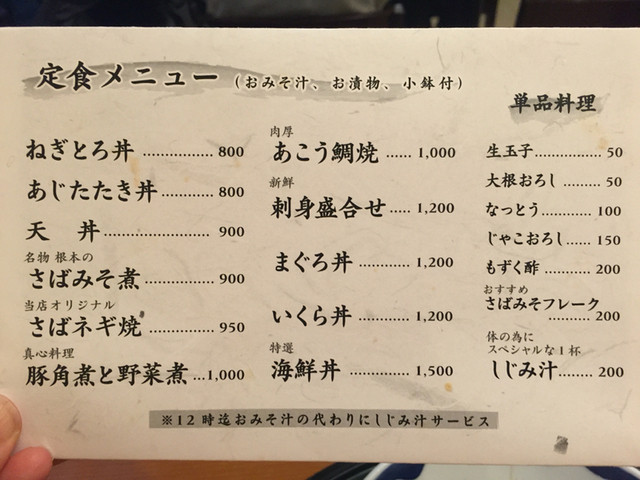 定食メニュー (おみそ汁、お漬物、小鉢付)
ねぎとろ丼 ............... 800
あじたたき丼 ............ 800
天 丼 ........................ 900
名物 根本の
さばみそ煮 ............... 900
当店オリジナル
さばネギ焼 ............... 950
真心料理
豚角煮と野菜煮 ...1,000
肉厚
あこう鯛焼 ...... 1,000
新鮮
刺身盛合せ ..... 1,200
まぐろ丼 ............ 1,200
いくら丼 ............ 1,200
特選
海鮮丼 ............... 1,500
単品料理
生玉子............... 50
大根おろし ........ 50
なっとう ............ 100
じゃこおろし...... 150
もずく酢 ............ 200
おすすめ
さばみそフレーク
............ 200
体の為に
スペシャルな1杯
しじみ汁........ 200
※12時迄おみそ汁の代わりにしじみ汁サービス